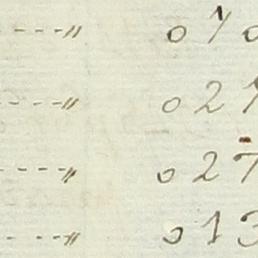 ----〃 010
----〃 021
----〃 027
----〃 013